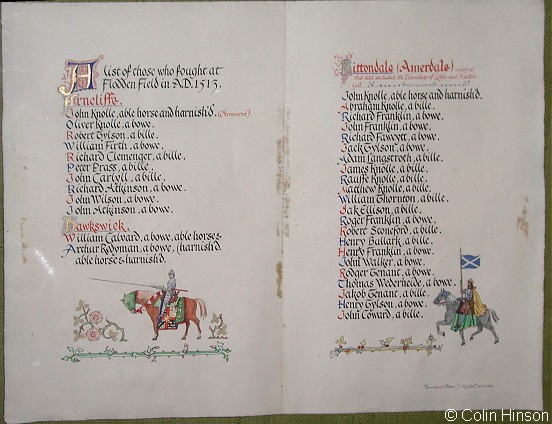 A list of those who fought at
Flodden Field in A.D. 1513.
Arncliffe.
John Knolle, able horse and harnish'd. (Armoured)
Oliver Knolle, a bowe.
Robert Tylson, a bille.
William Firth, a bowe.
Richard Clemenger, a bille.
Peter Prass, a bille.
John Carlyll, a bille.
Richard Atkinson, a bowe.
John Wilson, a bowe.
John Atkinson, a bowe.
Hawkswick.
William Calvard, a bowe, able horse &
Arthur Redyman, a bowe, (harnish'd.
able horse & harnish'd.
Littondale (Amerdale)
that date included the Townships of Litton and
John Knolle, able horse and harnish'd.
Abraham Knolle, a bowe.
Richard Franklin, a bowe.
John Franklin, a bowe.
Richard Fawcett, a bowe.
Jack Tylson, a bowe.
Adam Langstroth, a bille.
James Knolle, a bille.
Rauffe Knolle, a bille.
Matthew Knolle, a bille.
William Thornton, a bille.
Jak Ellison, a bille.
Roger Franklin, a bowe.
Robert Stoneford, a bille.
Henry Ballark, a bille.
Henry Franklin, a bowe.
John Walker, a bowe.
Rodger Tenant, a bowe.
Thomas Wederheide, a bowe.
Jakob Tenant, a bille.
Henry Tylson, a bowe.
John Coward, a bille.
© Colin Hinson